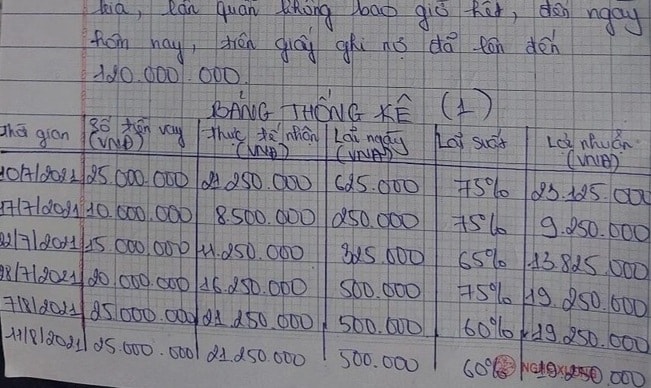 lẩn quẩn không bao giờ hết, đến ngày
hôm nay, trên giấy ghi nợ đã lên đến
120.000.000.
BẢNG THỐNG KÊ (1)
Thời gian Số tiền vay (VNĐ) Thực tế nhận (VNĐ) Lãi ngày (VNĐ) Lãi suất Lợi nhuận (VNĐ)
10/7/2021 25.000.000 21.250.000 625.000 75% 23.125.000
17/7/2021 10.000.000 8.500.000 250.000 75% 9.250.000
22/7/2021 15.000.000 11.250.000 325.000 65% 13.825.000
28/7/2021 20.000.000 16.250.000 500.000 75% 19.250.000
7/8/2021 25.000.000 21.250.000 500.000 60% 19.250.000
11/8/2021 25.000.000 21.250.000 500.000 60% 19.250.000